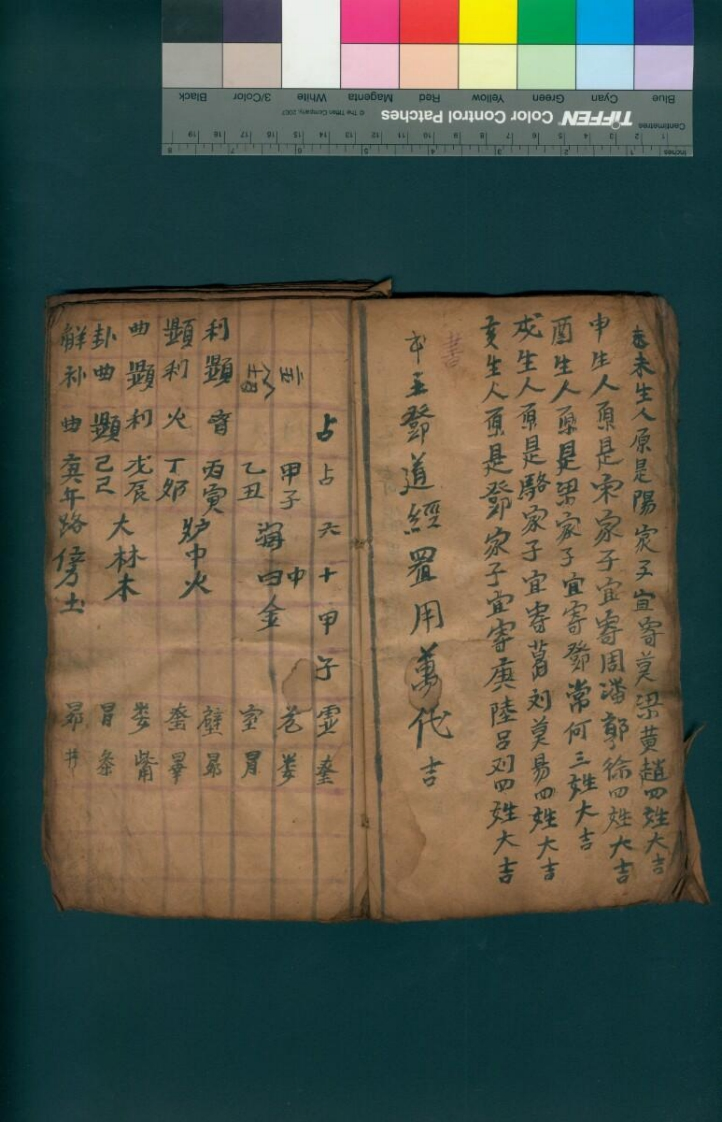 Blue Cyan Green Yellow Red Magenta White 3/Color Black
TIFFEN Color Control Patches © The Tiffen Company, 2007
Centimetres
Inches
未生人原是陽家子宜寄莫梁黄趙四姓大吉
申生人原是宋家子宜寄周潘鄧徐四姓大吉
酉生人原是梁家子宜寄鄧常何三姓大吉
戌生人原是駱家子宜寄葛刘莫易四姓大吉
亥生人原是鄧家子宜寄庚陸呂刘四姓大吉
書
本主鄧道經置用萬代吉
占占六十甲子虚奎
甲子
危娄
海中金
乙丑
室胃
利顕音丙寅
壁昴
顕利火丁卯
炉中火
奎畢
曲顕利戊辰
娄觜
卦曲顕己巳
大林木
胃参
解补曲庚午路傍土
昴井